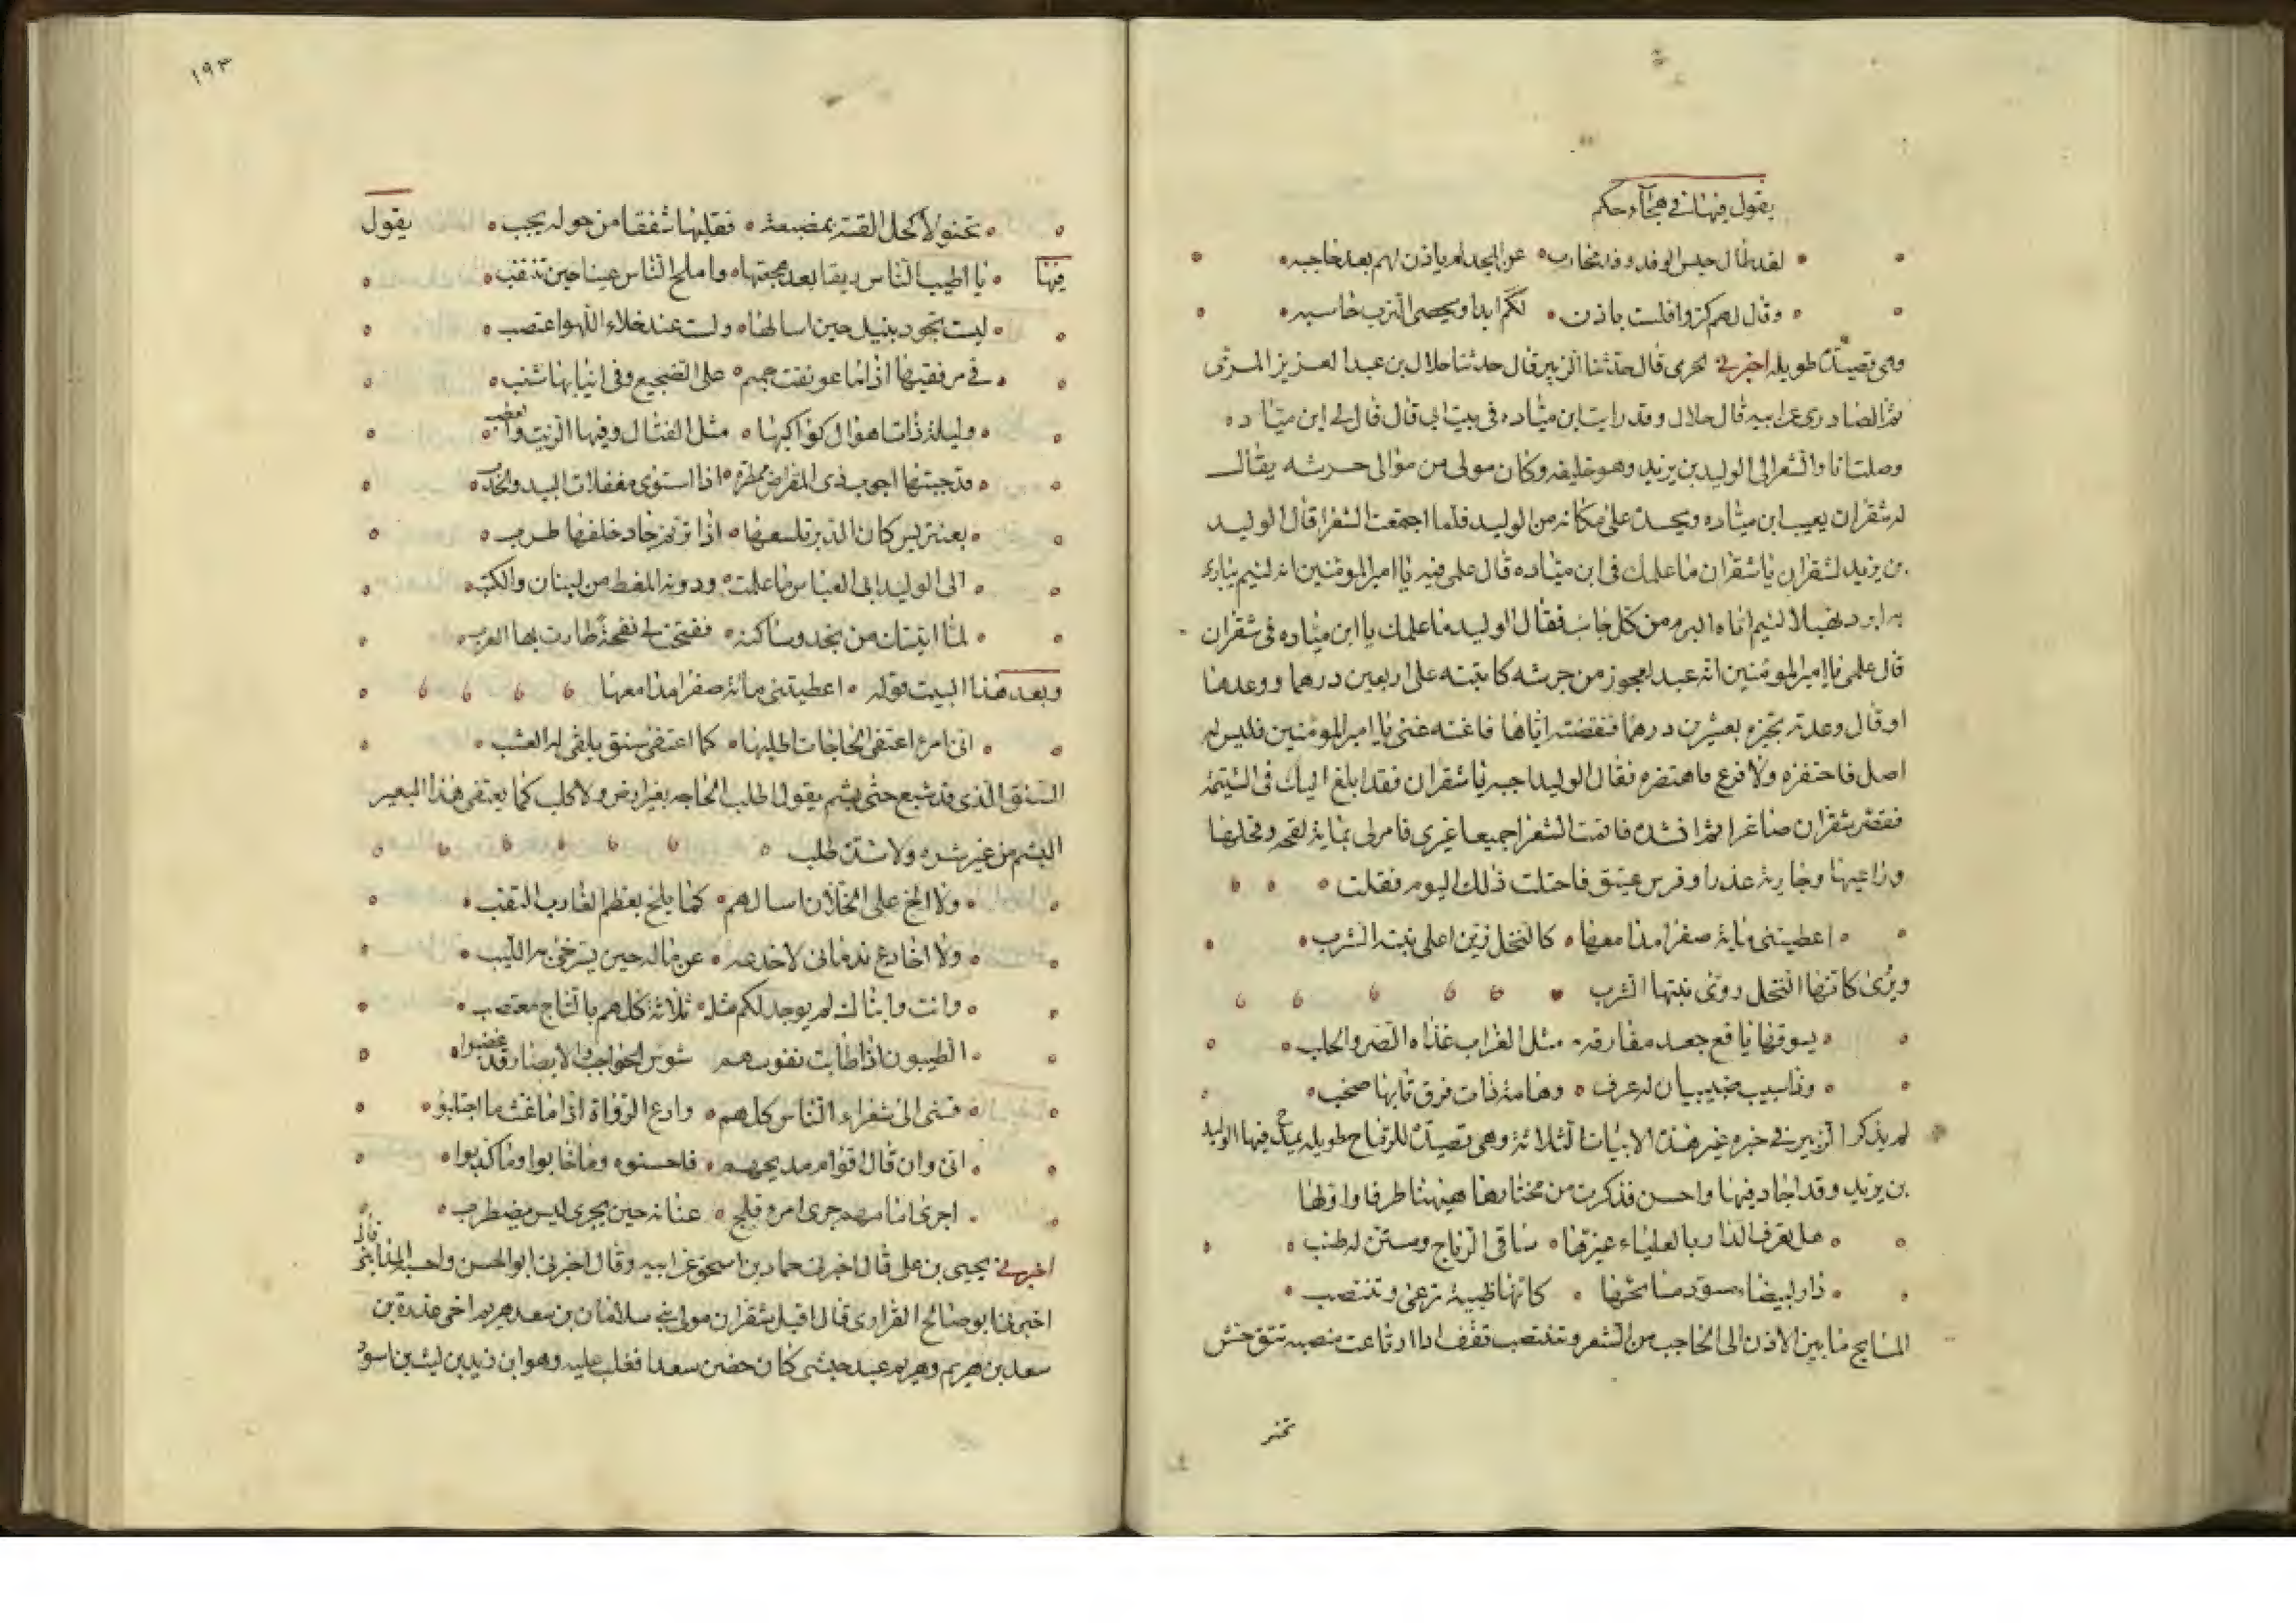 يقول فيها في هجاء حكم
لقد طال حبس الوفد وفد محارب عن المجد لم ياذن لهم بعد حاجبه
وقال لهم كروا فلست باذن لكم ابدا ويحصى الترب حاسبه
وهي قصيدة طويلة اخبرني الحرمي قال حدثنا الزبير قال حدثنا جلال بن عبد العزيز المري
ثم الصادري عن ابيه قال جلال وقد رايت ابن مياده في بيت ابي قال قال لي ابن مياده
وصلت انا والشعرا الى الوليد بن يزيد وهو خليفه وكان مولى من موالي خرشه يقال
له شقران يعيب ابن مياده ويحسده على مكانه من الوليد فلما اجتمعت الشعرا قال الوليد
بن يزيد لشقران يا شقران ما علمك في ابن مياده قال علمي فيه يا امير المومنين انه لئيم يباري
به ابرد نهبلا لئيم اتاه اللوم من كل جانب فقال الوليد ما علمك يا ابن مياده في شقران
قال علمي يا امير المومنين انه عبد لعجوز من خرشه كاتبته على اربعين درهما ووعدها
او قال وعدته بجيزه بعشرين درهما فقبضته اياها فاغنه عني يا امير المومنين فليس له
اصل فاحتفره ولا فرع فاهتصره فقال الوليد اجبه يا شقران فقد ابلغ اليك في الشتيمة
فقصر شقران صاغرا ثم انشده فاقمت الشعرا جميعا غيري فامر لي بماية لقحه وفحلها
وراعيها وجارية عذرا وفرس عتيق فاختلت ذلك اليوم فقلت
اعطيتني ماية صفرا مدامعها كالنخل زين اعلى نبته الشرب
ويروى كانها النخل روى نبتها الشرب
يسوقها يافع جعد مفارقه مثل الغراب غذاه الصر والحلب
وذا سبيب صهيبيا له عرف وهامة ذات فرق نابها صخب
لم يذكر الزبير في خبره غير هذه الابيات الثلاثة وهي قصيدة للرماح طويله يمدح فيها الوليد
بن يزيد وقد اجاد فيها واحسن فذكرت من مختارها هيهنا طرفا واولها
هل تعرف الدار بالعلياء غيرها سافي الرياح ومستن له طنب
دار لبيضاء مسود مسائحها كانها ظبية ترعى وتنتصب
المسايح ما بين الاذن الى الحاجب من الشعر وتنتصب تقف اذا ارتاعت منصبه تتوجس
تحنو
١٩٣
تحنو لاكحل القته بمضيعة فقلبها شفقا من حوله يجب يقول
فيها يا اطيب الناس ريقا بعد هجعتها واملح الناس عينا حين تنتقب
ليست تجود بنيل حين اسالها ولست عند خلاء اللهو اغتصب
في مرفقيها اذا ما عونقت جمم على الضجيع وفي انيابها شنب
وليلة ذات اهوال كواكبها مثل القناديل فيها الزيت والعطب
قد جبتها جوب ذي المقراض ممطرة اذا استوى مغفلات البيد والحدب
بعنتريس كان الدبر تلسعها اذا ترنم حاد خلفها طرب
الى الوليد ابي العباس ما عملت ودونه المعط من لبنان والكثب
لما اتيتك من نجد وساكنه نفحت لي نفحة طارت بها العرب
وبعد هذا البيت قوله اعطيتني مائة صفرا مدامعها
اني امرؤ اعتفي الحاجات اطلبها كما اعتفى سنق يلقى له العشب
السنق الذي قد شبع حتى بشم يقول اطلب الحاجه بغير حرص ولا كلب كما يعتفي هذا البعير
البشم من غير شره ولا شدة طلب
ولا الح على الخلان اسالهم كما يلح بعظم الغارب القتب
ولا اخادع ندماني لاخدعه عن ماله حين يسترخي به اللبب
وانت وابناك لم يوجد لكم مثل ثلاثة كلهم بالتاج معتصب
الطيبون اذا طابت نفوسهم شوس الحواجب والابصار قد غضبوا
قسني الى شعراء الناس كلهم وادع الرواة اذا ما غث ما اجتلبوا
اني وان قال اقوام مديحهم فاحسنوه وما خابوا وما كذبوا
اجرى امامهم جري امرء فلج عنانه حين يجري ليس يضطرب
اخبرني يحيى بن علي قال اخبرني حماد بن اسحق عن ابيه وقال اخبرني ابو الحسن واحسبه المدائني قال
اخبرني ابو صالح الفزاري قال اقبل شقران مولى بني سلامان بن سعد هريم اخي عذرة بن
سعد بن هريم وهريم عبد حبشي كان حضن سعدا فغلب عليه وهو ابن زيد بن ليث بن اسود